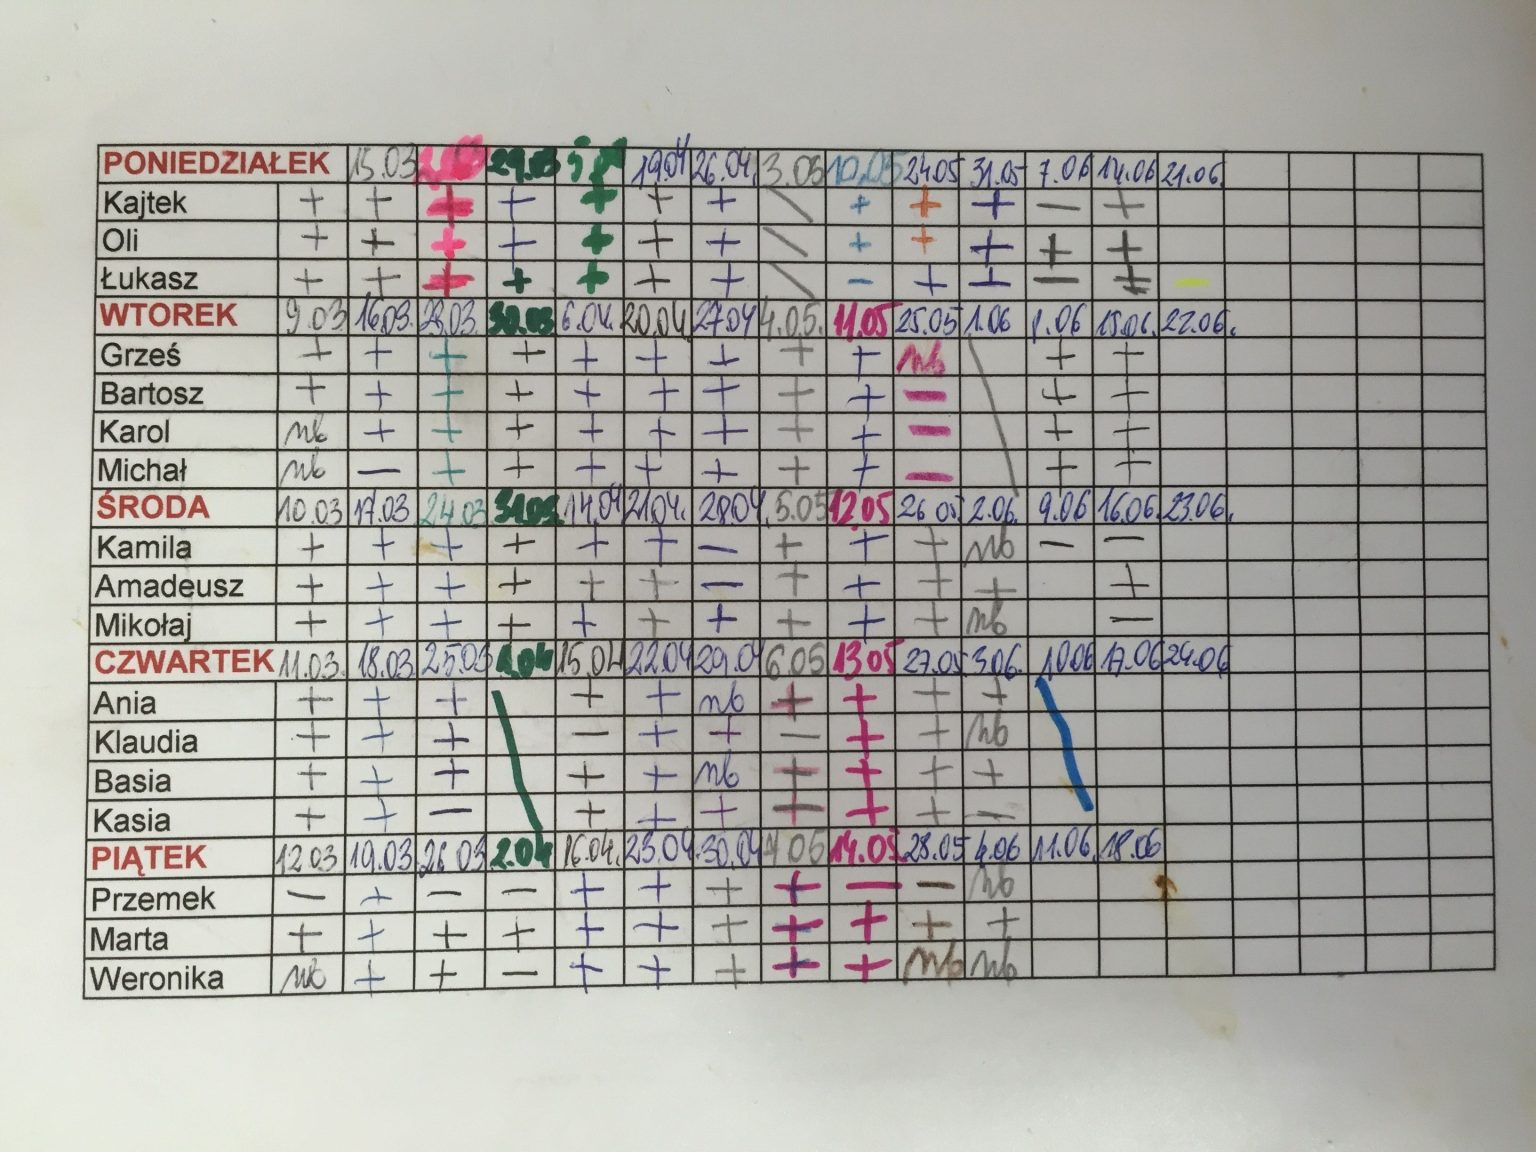 PONIEDZIAŁEK 15.03 29.03 19.04 26.04. 3.05 10.05 24.05 31.05 7.06 14.06 21.06.
Kajtek + + + + + + + \ + + + — +
Oli + + + + + + + \ + + + + +
Łukasz + + + + + + + \ – + + — + —
WTOREK 9.03 16.03. 23.03. 30.03 6.04. 20.04 27.04 4.05. 11.05 25.05 1.06 .06 15.06. 22.06.
Grześ + + + + + + + + + nb + +
Bartosz + + + + + + + + + — + +
Karol nb + + + + + + + + — + +
Michał nb — + + + + + + + — + +
ŚRODA 10.03 17.03 24.03 31.03. 14.04 21.04. 28.04. 5.05 12.05 26.05 2.06. 9.06 16.06. 23.06.
Kamila + + + + + + — + + + nb — —
Amadeusz + + + + + + — + + + + +
Mikołaj + + + + + + + + + + nb —
CZWARTEK 11.03. 18.03. 25.03 1.04 15.04 22.04 29.04 6.05 13.05 27.05 3.06. 10.06 17.06 24.06
Ania + + + + + nb + + + +
Klaudia + + + — + + — + + nb
Basia + + + + + nb + + + +
Kasia + + — + + + + + + —
PIĄTEK 12.03 19.03 26.03 2.04 16.04. 23.04. 30.04 7.05 14.05 28.05 4.06 11.06. 18.06
Przemek — + — — + + + + — — nb
Marta + + + + + + + + + + +
Weronika nb + + — + + + + + nb nb